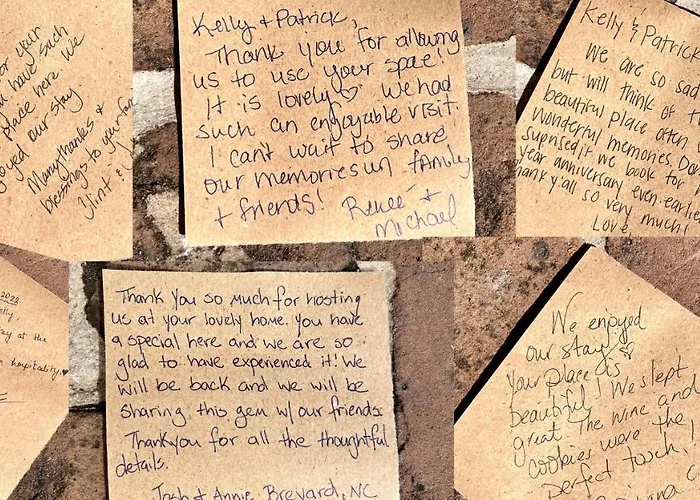 or your
have such
place here. We
oyed our stay
Many thanks &
blessings to your fam
Clint &
Kelly & Patrick,
Thank you for allowing
us to use your space!
It is lovely ♡. We had
such an enjoyable visit.
I can't wait to share
our memories w/ family
+ friends!
Reneé +
Michael
Kelly & Patrick
We are so sad
but will think of t
beautiful place often
wonderful memories. Don
suprised if we book for
year anniversary even earlie
hank y'all so very much!
Love
2022
elly,
ay at the
hospitality.♥
Thank you so much for hosting
us at your lovely home. You have
a special here and we are so
glad to have experienced it! We
will be back and we will be
sharing this gem w/ our friends.
Thankyou for all the thoughtful
details.
Josh & Annie, Brevard, NC
We enjoyed
our stay ♡
Your place is
beautiful! We slept
great. The wine and
cookies were the
perfect touch!